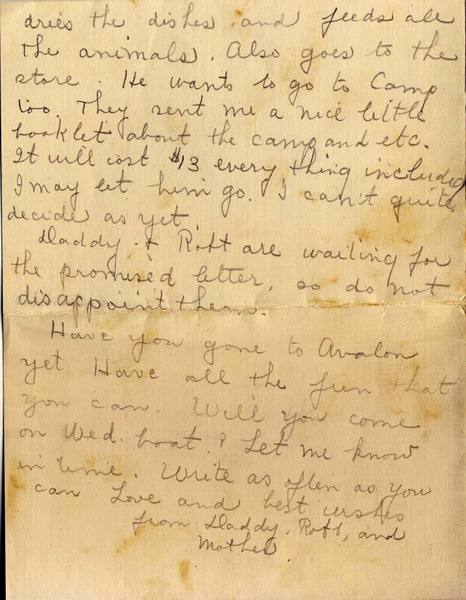 dries the dishes and feeds all
the animals. Also goes to the
store. He wants to go to Camp
too. They sent me a nice little
booklet about the camp and etc.
It will cost $13 every thing included
I may let him go. I can't quite
decide as yet.
Daddy & Robt are waiting for
the promised letter, so do not
disappoint them.
Have you gone to Avalon
yet. Have all the fun that
you can. Will you come
on Wed. boat? Let me know
in time. Write as often as you
can Love and best wishes
from Daddy, Robt, and
Mother.